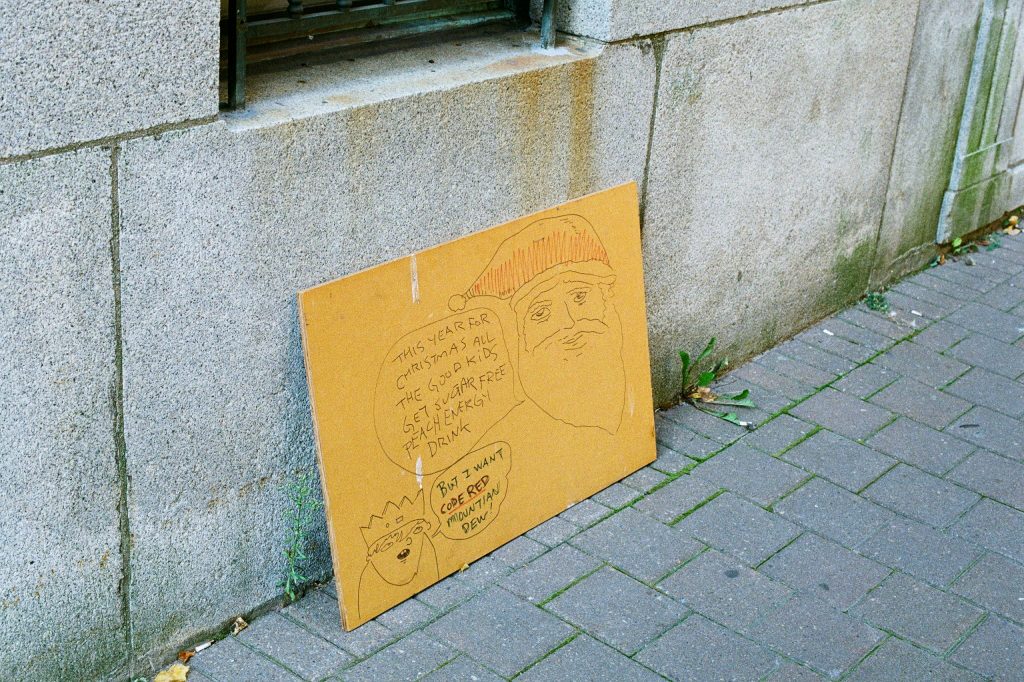 THIS YEAR FOR
CHRISTMAS ALL
THE GOOD KIDS
GET SUGAR FREE
PEACH ENERGY
DRINK
BUT I WANT
CODE RED
MOUNTIAN
DEW!